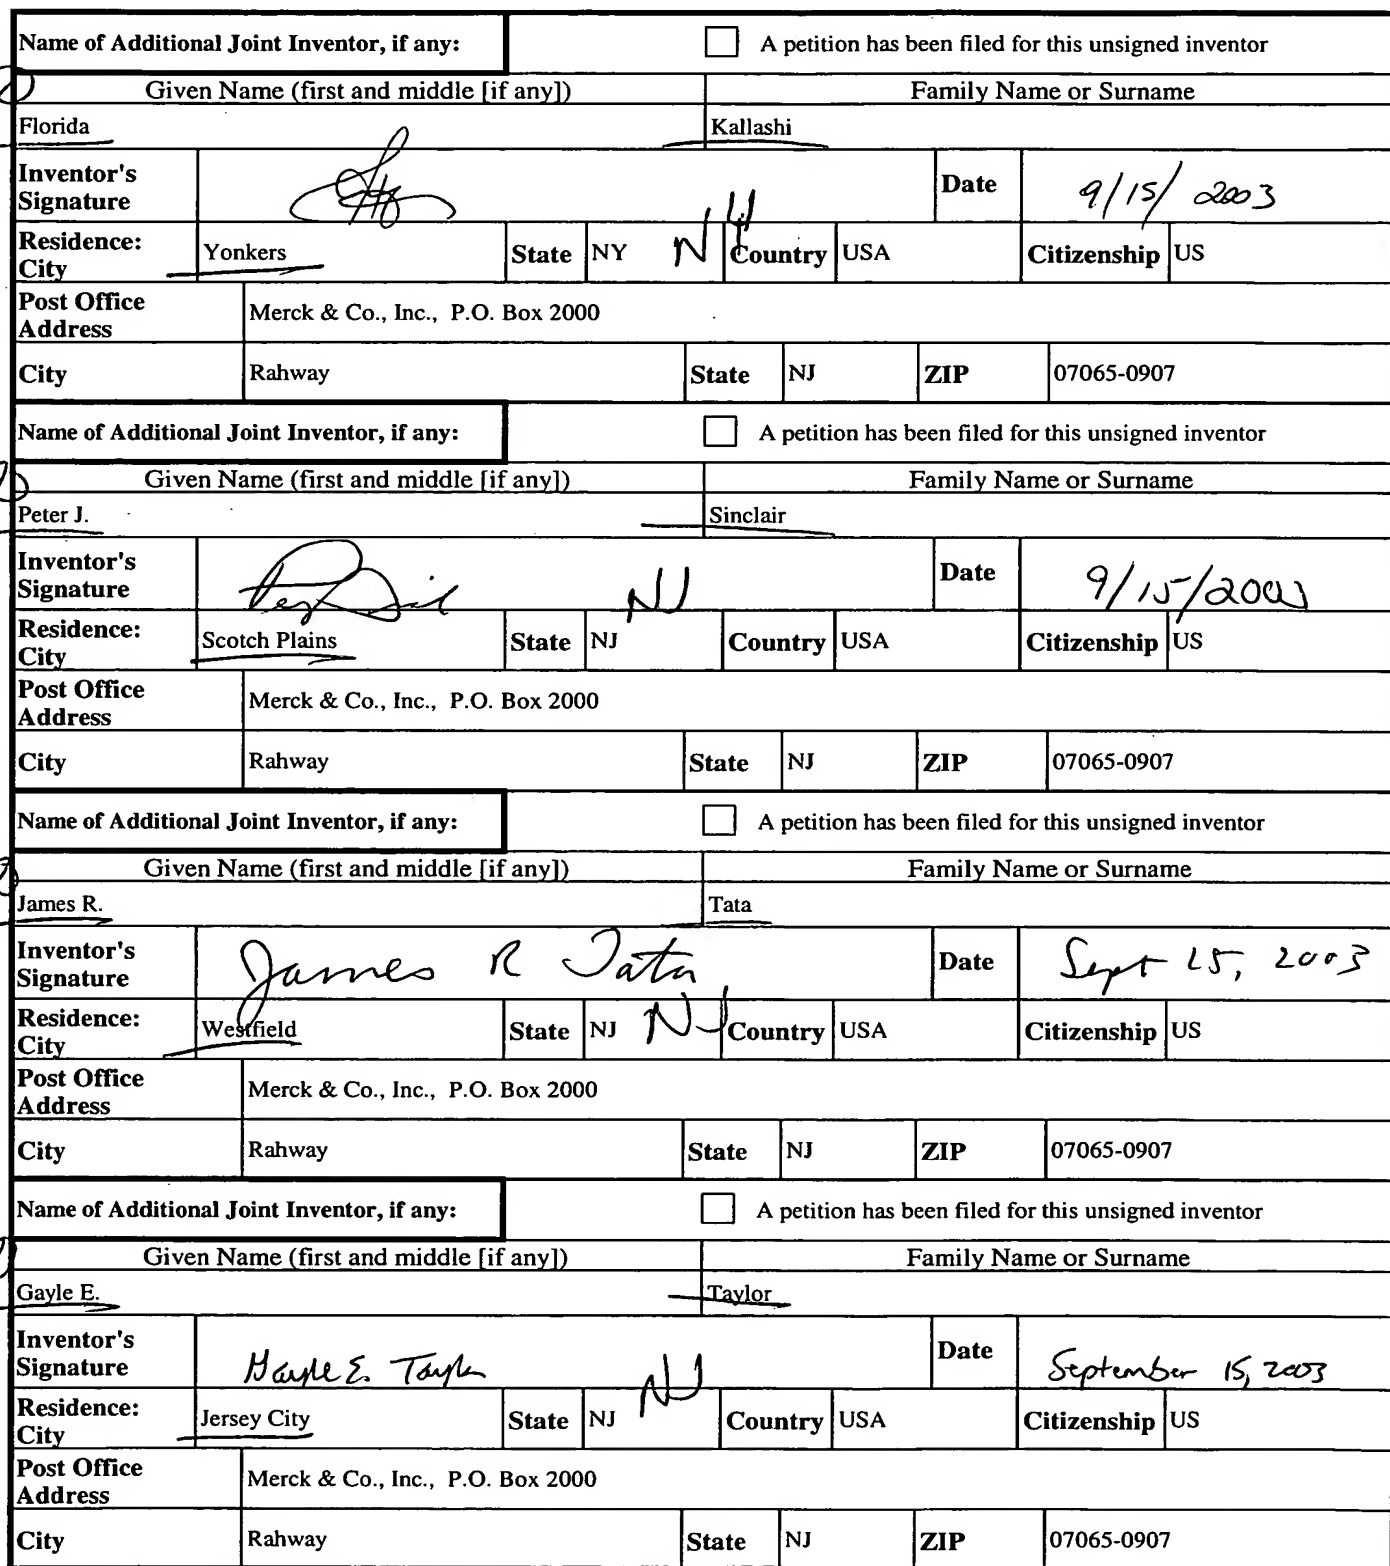 Name of Additional Joint Inventor, if any: A petition has been filed for this unsigned inventor
Given Name (first and middle [if any]) Family Name or Surname
Florida Kallashi
Inventor's Signature Date 9/15/ 2003
NY
Residence: City Yonkers State NY Country USA Citizenship US
Post Office Address Merck & Co., Inc., P.O. Box 2000
City Rahway State NJ ZIP 07065-0907
Name of Additional Joint Inventor, if any: A petition has been filed for this unsigned inventor
Given Name (first and middle [if any]) Family Name or Surname
Peter J. Sinclair
Inventor's Signature NJ Date 9/15/2003
Residence: City Scotch Plains State NJ Country USA Citizenship US
Post Office Address Merck & Co., Inc., P.O. Box 2000
City Rahway State NJ ZIP 07065-0907
Name of Additional Joint Inventor, if any: A petition has been filed for this unsigned inventor
Given Name (first and middle [if any]) Family Name or Surname
James R. Tata
Inventor's Signature James R Tata Date Sept 15, 2003
Residence: City Westfield State NJ NJ Country USA Citizenship US
Post Office Address Merck & Co., Inc., P.O. Box 2000
City Rahway State NJ ZIP 07065-0907
Name of Additional Joint Inventor, if any: A petition has been filed for this unsigned inventor
Given Name (first and middle [if any]) Family Name or Surname
Gayle E. Taylor
Inventor's Signature Gayle E. Taylor NJ Date September 15, 2003
Residence: City Jersey City State NJ Country USA Citizenship US
Post Office Address Merck & Co., Inc., P.O. Box 2000
City Rahway State NJ ZIP 07065-0907